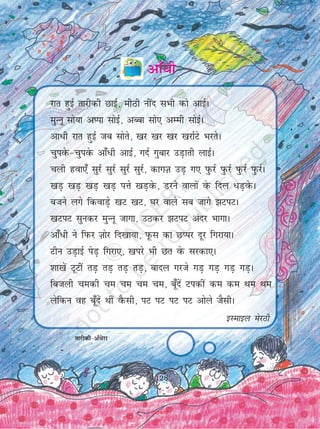 आँधी
रात हुई तारीकी छाई, मीठी नींद सभी को आई।
मुन्नू सोया अप्पा सोई, अब्बा सोए अम्मी सोई।
आधी रात हुई जब सोते, खर खर खर खर्राटे भरते।
चुपके-चुपके आँधी आई, गर्द गुबार उड़ाती लाई।
चली हवाएँ सुर्र सुर्र सुर्र सुर्र, काग़ज़ उड़ गए फुर्र फुर्र फुर्र फुर्र।
खड़ खड़ खड़ खड़ पत्ते खड़के, डरने वालों के दिल धड़के।
बजने लगे किवाड़े खट खट, घर वाले सब जागे झटपट।
खटपट सुनकर मुन्नू जागा, उठकर झटपट अंदर भागा।
आँधी ने फिर ज़ोर दिखाया, फूस का छप्पर दूर गिराया।
टीन उड़ाई पेड़ गिराए, खपरे भी छत के सरकाए।
शाखें टूटीं तड़ तड़ तड़ तड़, बादल गरजे गड़ गड़ गड़ गड़।
बिजली चमकी चम चम चम चम, बूँदें टपकीं कम कम थम थम
लेकिन वह बूँदें थीं कैसी, पट पट पट पट ओले जैसी।
इस्माइल मेरठी
तारीकी-अँधेरा